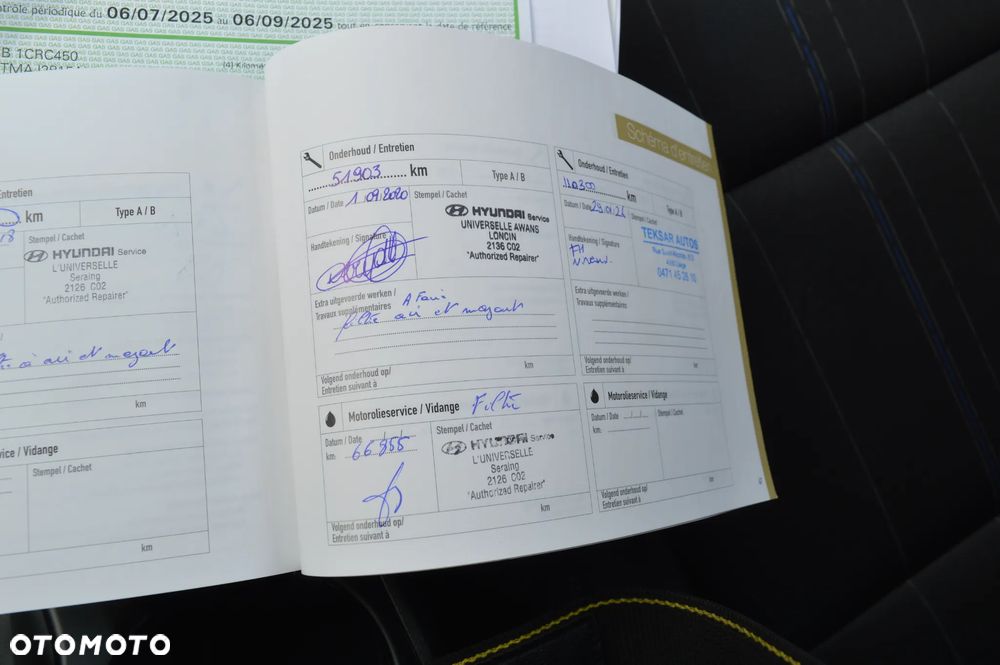 ntrôle périodique du 06/07/2025 au 06/09/2025 tout en conservant la date de référence
B 1CRC450
Schéma d'entretien
Entretien
km
Type A / B
18
Stempel / Cachet
HYUNDAI Service
L'UNIVERSELLE
Seraing
2126 C02
"Authorized Repairer"
à air et mazout
km
vice / Vidange
Stempel / Cachet
km
Onderhoud / Entretien
51903 km
Type A / B
Datum / Date 1 09.2020
Stempel / Cachet
HYUNDAI Service
UNIVERSELLE AWANS
LONCIN
2136 C02
"Authorized Repairer"
Handtekening / Signature
Extra uitgevoerde werken /
Travaux supplémentaires
A Faire
filtre air et mazout
Volgend onderhoud op/
Entretien suivant à
km
Motorolieservice / Vidange Filtre
Datum / Date
km: 66855
Stempel / Cachet
HYUNDAI Service
L'UNIVERSELLE
Seraing
2126 C02
"Authorized Repairer"
Volgend onderhoud op/
Entretien suivant à
km
Onderhoud / Entretien
110300 km
Type A / B
Datum / Date 29.01.24
Stempel / Cachet
TEKSAR AUTOS
0471 45 26 10
Handtekening / Signature
Extra uitgevoerde werken /
Travaux supplémentaires
Volgend onderhoud op/
Entretien suivant à
km
Motorolieservice / Vidange
Datum / Date
km:
Stempel / Cachet
Volgend onderhoud op/
Entretien suivant à
km
OTOMOTO